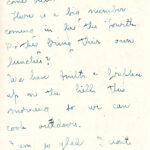 There is a big number
coming in for the "Fourth
they bring their own
lunches"
We have built a fireplace
up on the hill this
morning so we can
cook outdoors.
I am so glad I went